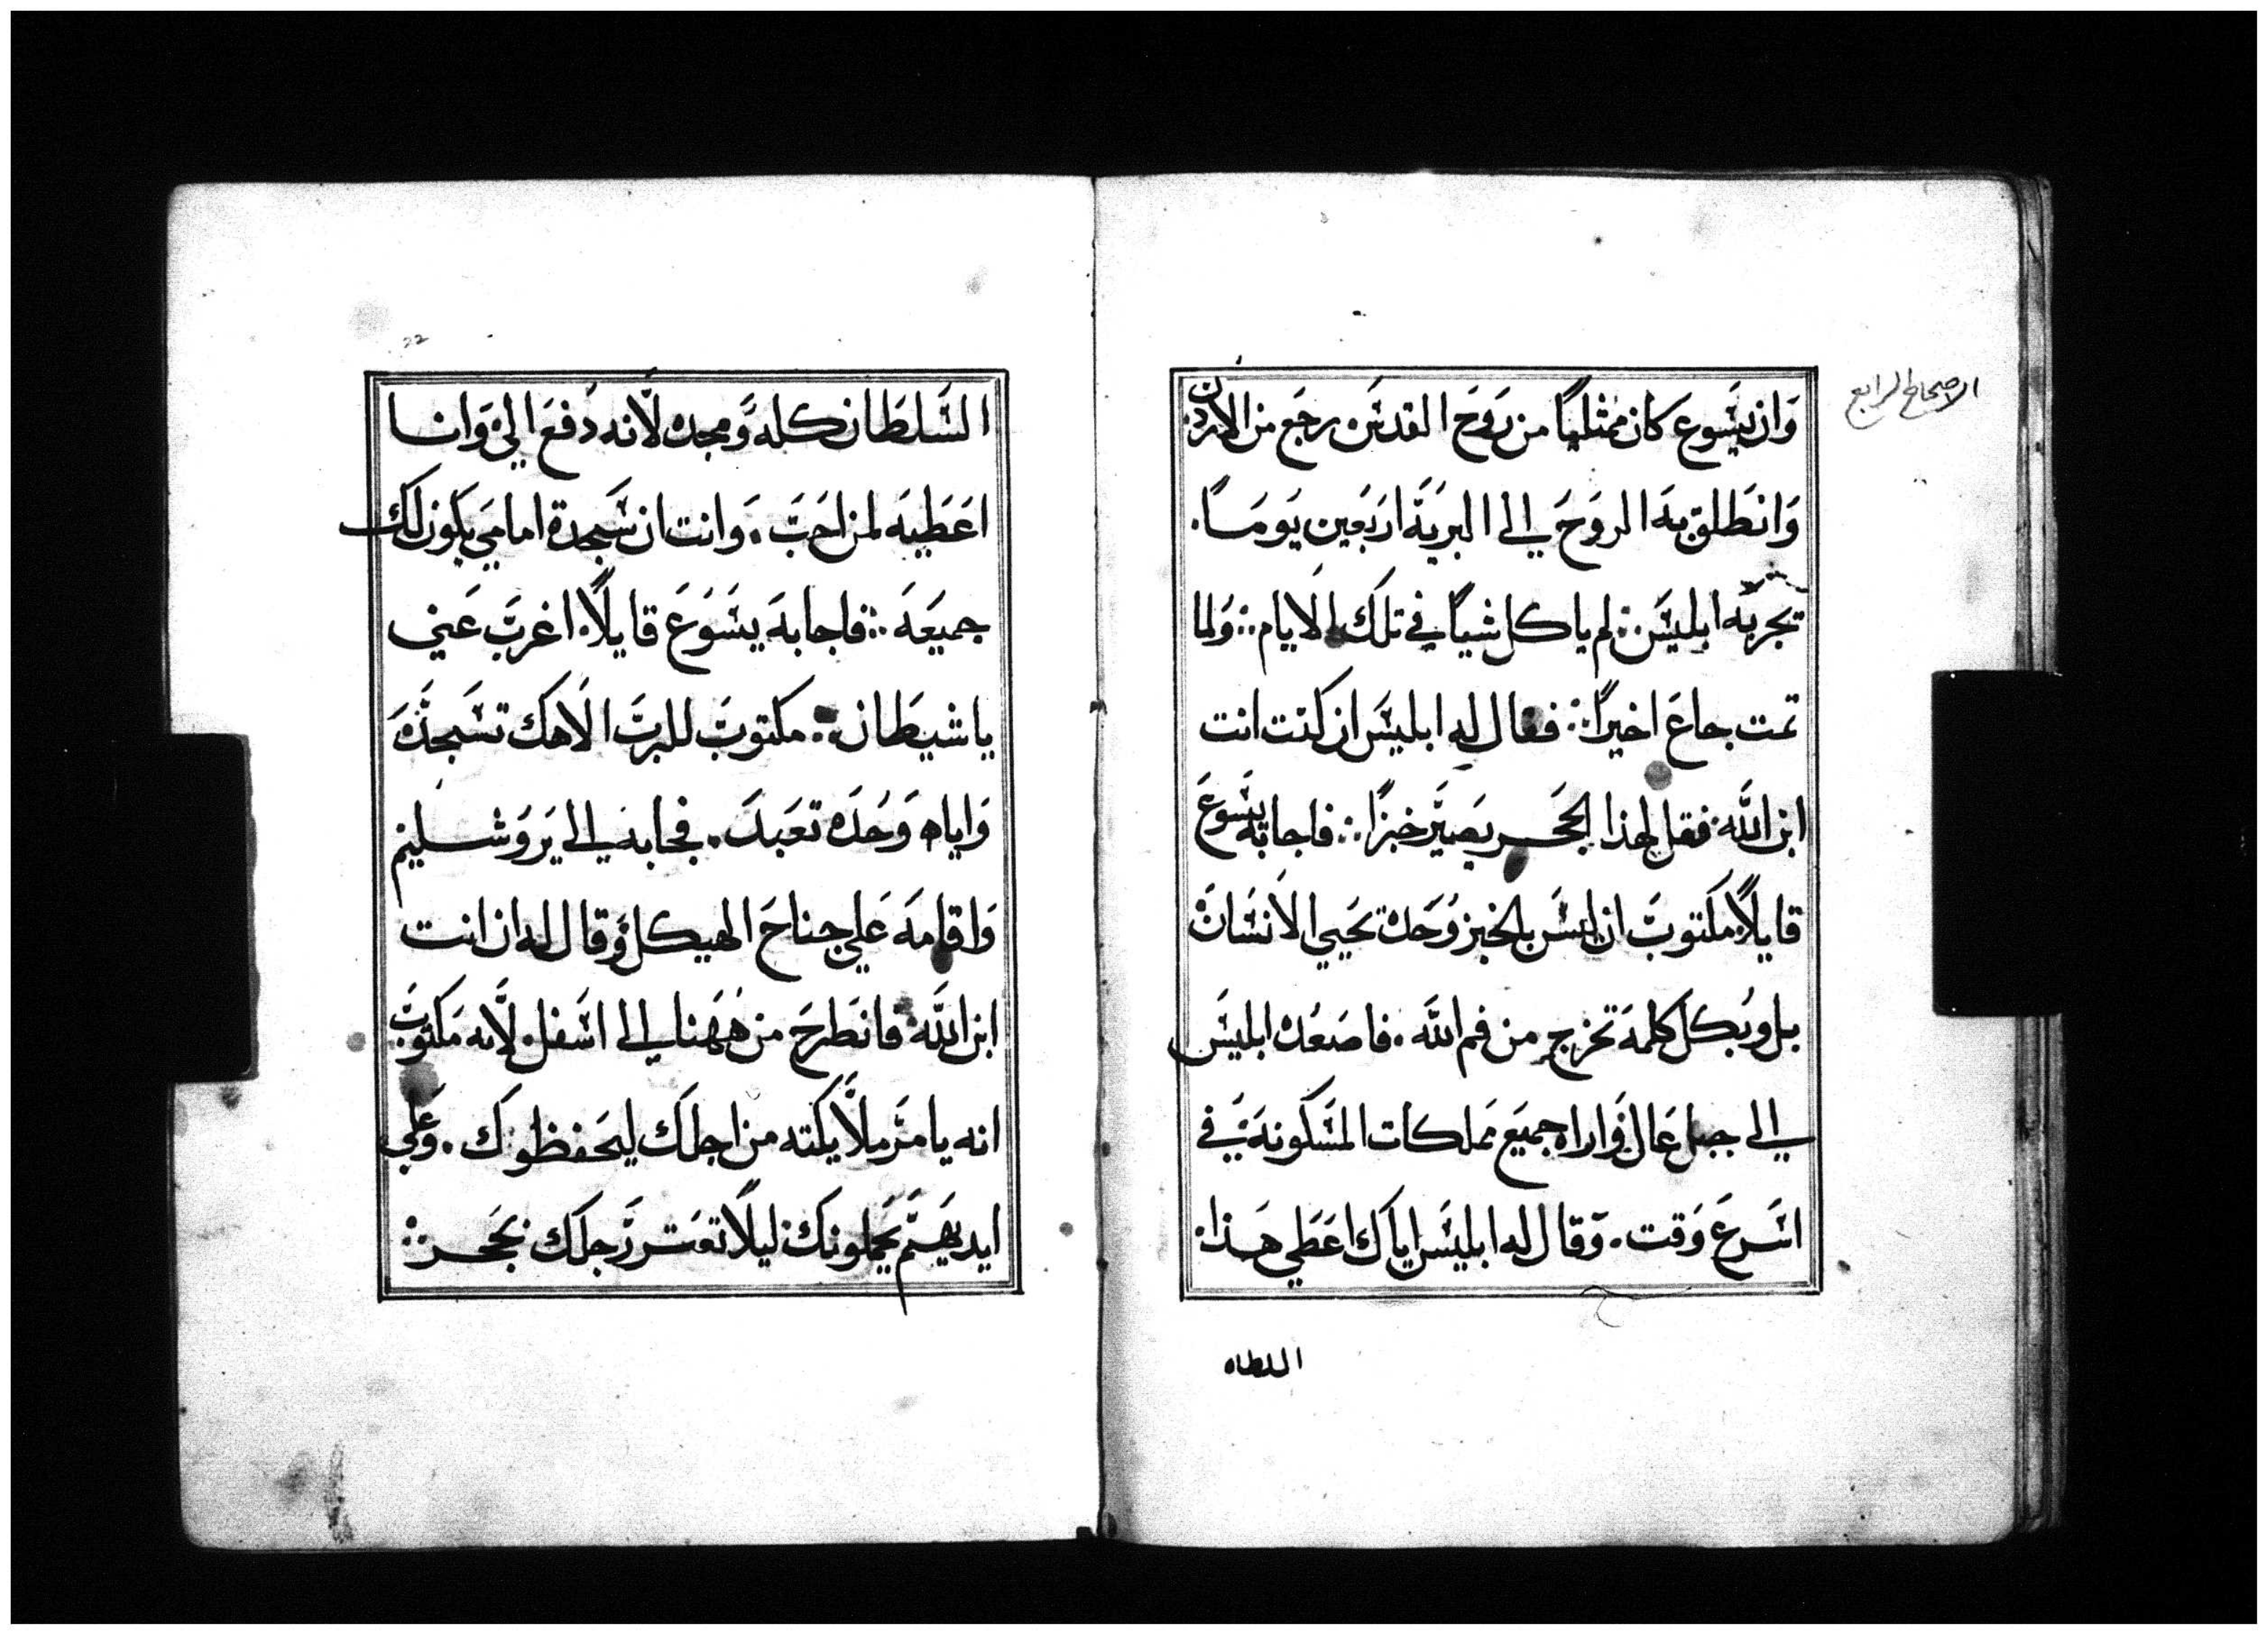 الاصحاح الرابع
وَان يسَوعَ كان ممثلياً من رَوحَ القدسَ رجَع من الاردن
وَانطَلق بهَ الروَحَ الى البريَهَ اربَعين يَومَاً.
تجربَه ابليسَ ∴ لم ياكل شياً في تلكَ الايام ∴ وَلما
تمت جاعَ اخيراً ∴ فقال له ابليسَ ان كنت انت
ابن اللَّه فقل لهذا الحجَر يصَيَر خبزاً ∴ فاجابهَ يسَوعَ
قايلاً مكتوبَ ان ليسَ بالخبز وَحَده تحَيي الانسَان
بل وبُكل كلمهَ تخرج من فم اللَّه. فاصَعُده ابليسَ
الى جبل عَال وَاراه جميعَ مَملكات المسَكونهَ في
اسَرعَ وَقت. وَقال له ابليسَ اياك اعَطي هَذا
السلطان
22
السَلطَان كله وَمجده لأنه دُفعَ اليّ وَانا
اعَطيهَ لمن احَبَ. وَانت ان سَجدة امامي يكون لك
جميعَهَ ∴ فاجابهَ يسَوَعَ قايلاً اغربَ عَني
ياشيطَان ∴ مكتوبَ للربَ الاهك تسَجدَ
وَاياه وَحَده تعَبدَ. فجابه الى يَروَشليم
وَاقامهَ عَلي جناحَ الهيكل وَقال له ان انت
ابن اللَّه فانطَرحَ من هَهَنا الى اسَفل لأنه مَكتوبَ
انه يامَر ملأيكته من اجلك ليحَفظوك. وَعَلي
ايديهَم يحَملونك ليلا تعَثر رَجلك بحَجر ∴